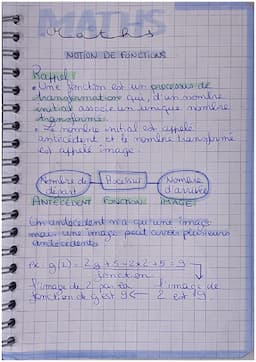 MATHS
Maths
NOTION DE FONCTIONS
Rappel :
• Une fonction est un processus de
transformation qui, d'un nombre
initial associe un unique nombre
transformé.
• Le nombre initial est appelé
antécédent et le nombre transformé
est appelé image
Nombre de départ
Nombre d'arrivée
ANTECEDENT FONCTION IMAGE
Un antécédent n'a qu'une image
mais une image peut avoir plusieurs
antécédents
g(2) = 2 + 5 = 2×2+5 = 9
fonction
l'image de 2 par la
fonction de g est 9
l'image de
2 est 9.